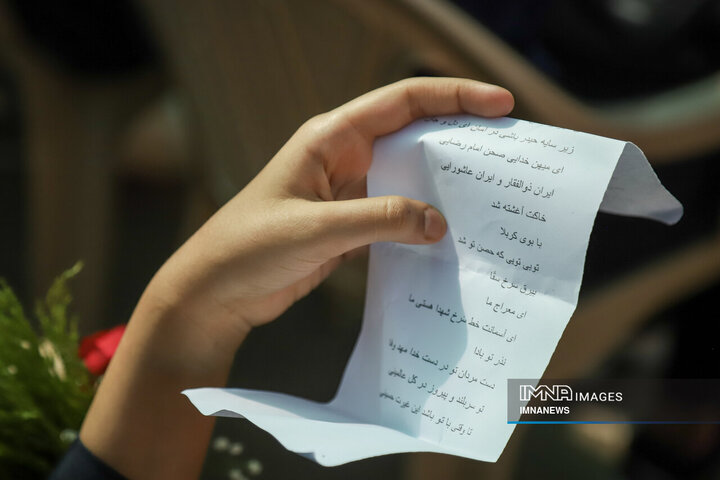 زیر سایه حیدر باشی در امان ای دل و جان
ای میهن خدایی صحن امام رضایی
ایران ذوالفقار و ایران عاشورایی
خاکت آغشته شد
با بوی کربلا
تویی تویی که حصن تو شد
بیرق سرخ سقا
ای معراج ما
ای آسمانت خط سرخ شهدا هستی ما
نذر تو بادا
دست مردان تو در دست خدا مهد وفا
تو سربلند و پیروز در کل عالمینی
تا وقتی با تو باشد این غیرت حسینی
IMNA IMAGES
IMNANEWS